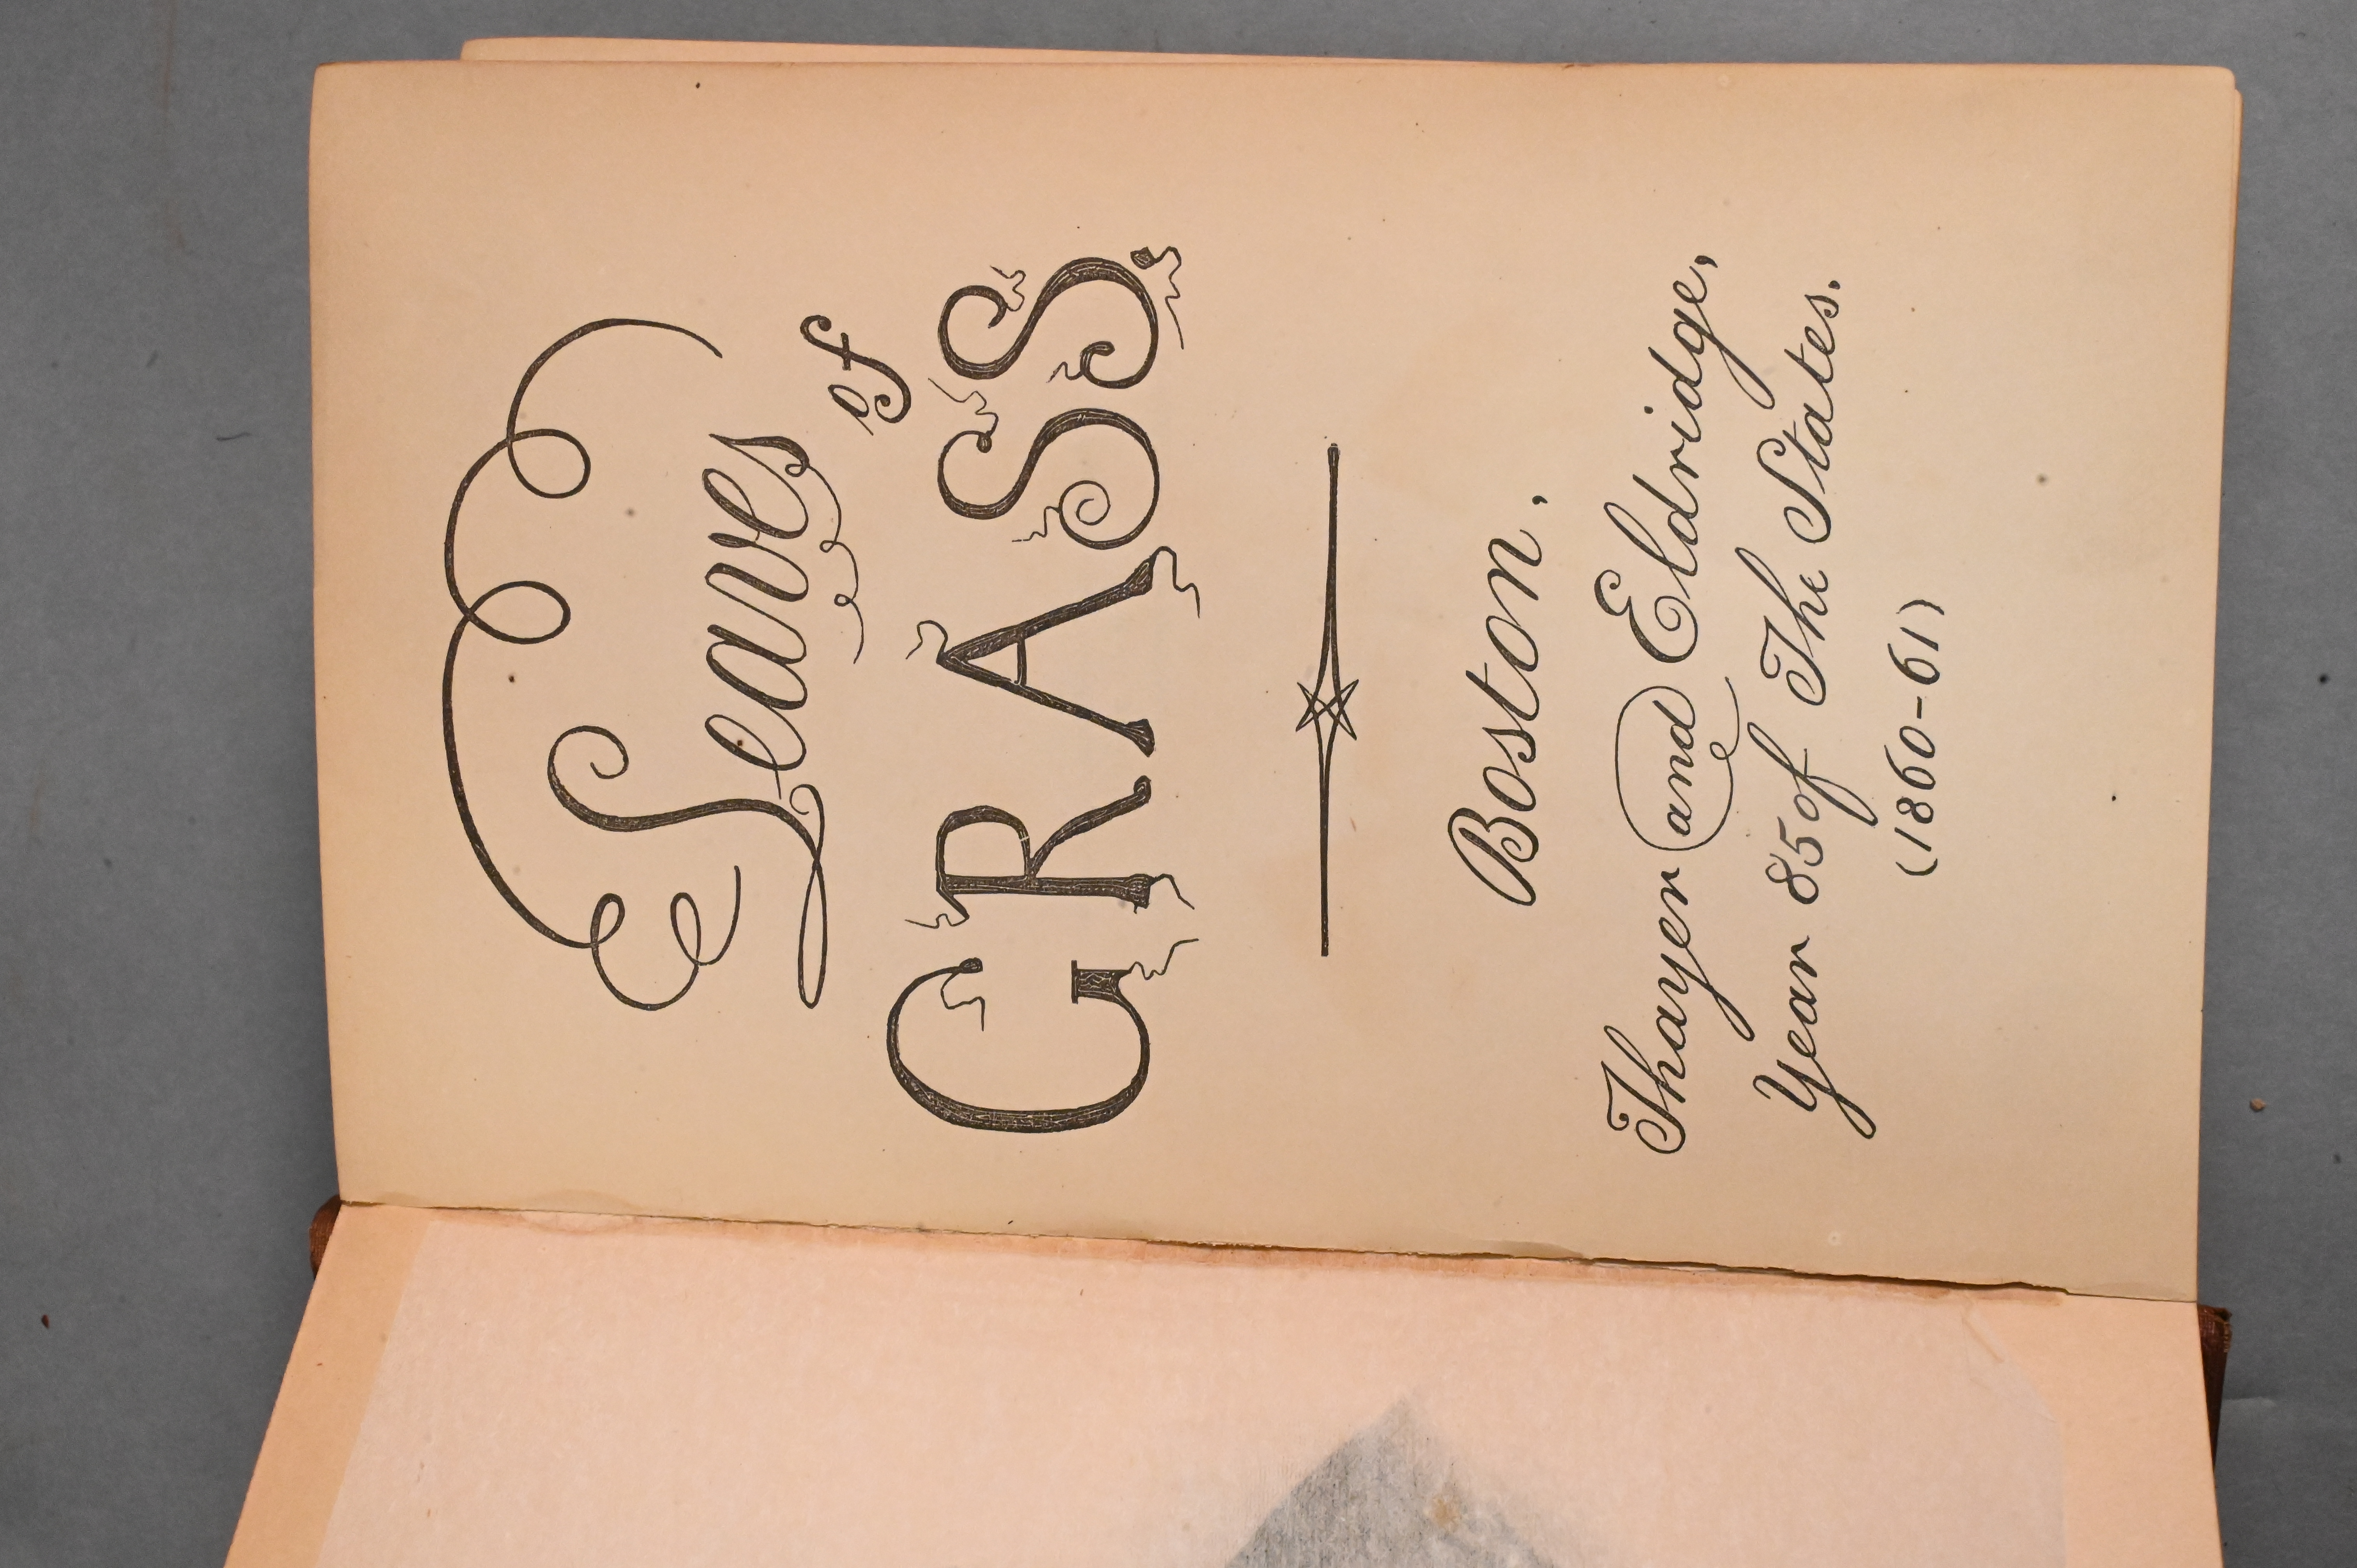 Leaves
of
GRASS
Boston,
Thayer and Eldridge,
Year 85 of The States.
(1860-61)